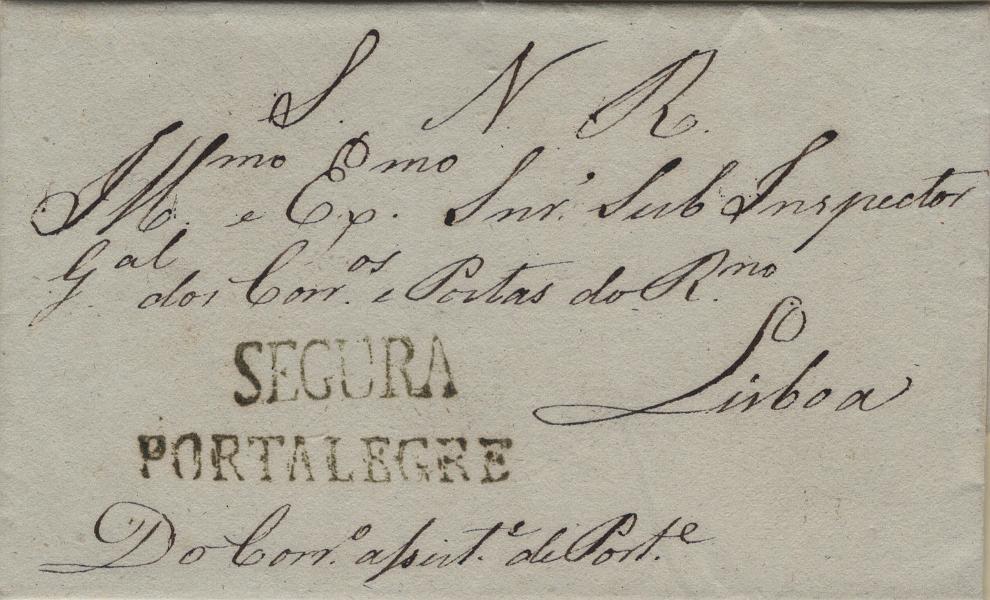 S. N. R.
Illmo. e Exmo. Snr. Sub Inspector
Gal dos Corr.os e Postas do R.no
Lisboa
SEGURA
PORTALEGRE
Do Corr.o assist.e de Port.e